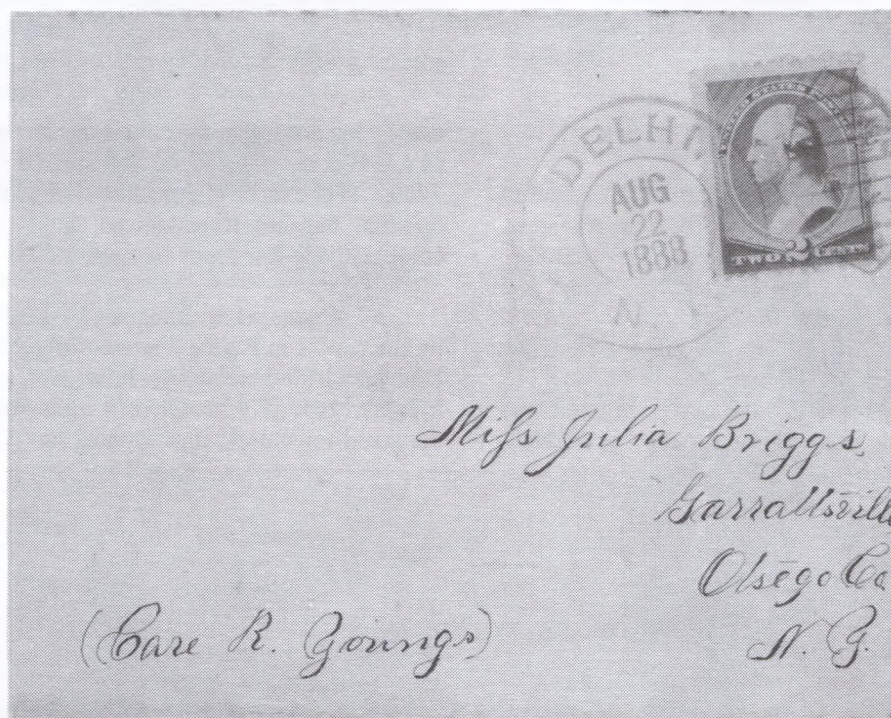 UNITED STATES
DELHI,
AUG
22
1888
N. Y.
TWO 2 CENTS
Miss Julia Briggs,
Garrattsville
Otsego Co
N. Y.
(Care R. Youngs)